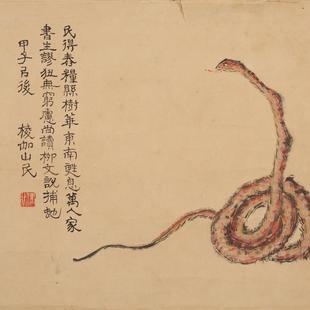 民得春糧縣樹華東南甦息萬人家
書生謬狂無窮慮尚讀柳文說捕虵
甲子後 棱伽山民